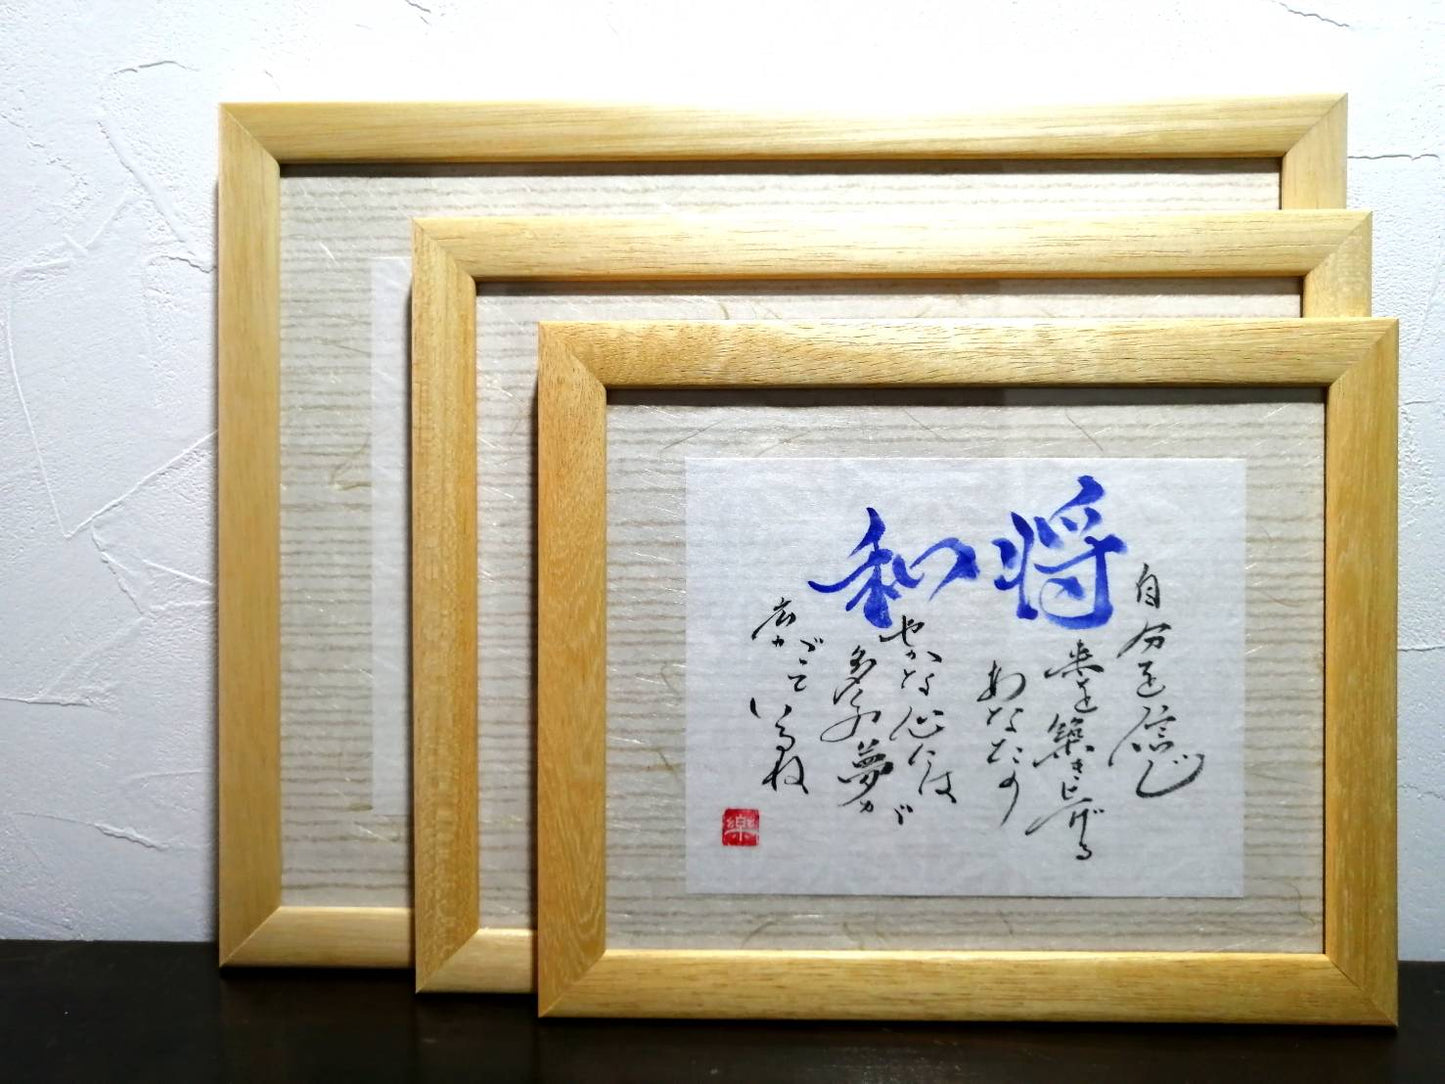 自分を信じ
将来を築き上げる
あなたの
和やかな心には
多くの夢が
広がっているね
樂